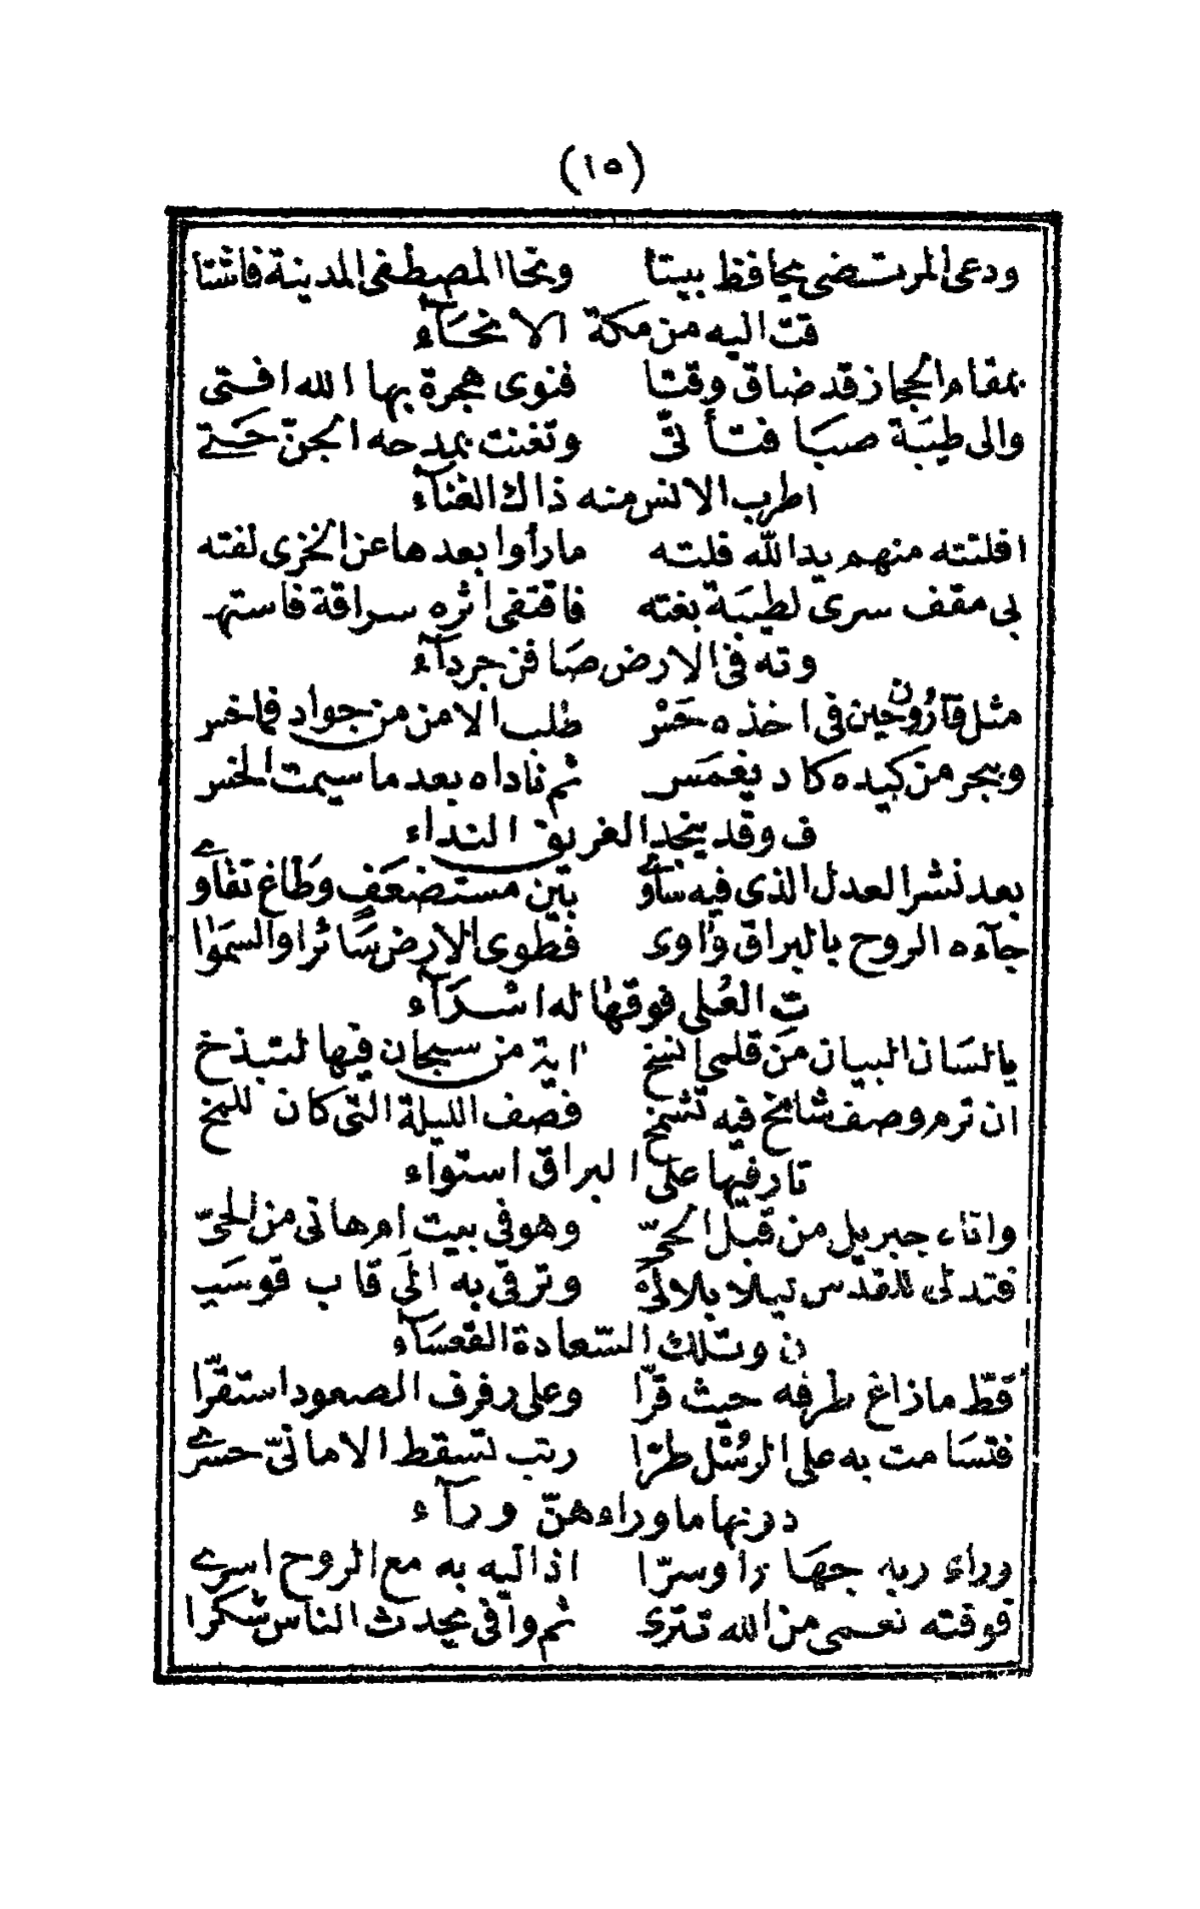 (١٥)
ودعى المرتضى يحافظ بيتا ونحا المصطفى المدينة فاشتا
قت اليه من مكة الانحآء
بمقام الحجاز قد ضاق وقتا فنوى هجرة بها الله افتى
والى طيبة صبا فتأتى وتغنت بمدحه الجن حتے
اطرب الانس منه ذاك الغنآء
افلتته منهم يد الله فلته ما رأوا بعدها عن الخزى لفته
بى مقف سرى لطيبة بغته فاقتفى اثره سراقة فاستهـ
وته فى الارض صافن جردآء
مثل قارون حين فى اخذه خسر طلب الامن من جواد فما خسر
وببحر من كيده كاد يغمس ثم ناداه بعد ما سيمت الخسـ
ف وقد ينجد الغريق النداء
بعد نشر العدل الذى فيه ساوٰے بين مستضعف وطاغ تقاوٰے
جآءه الروح بالبراق واوى فطوى الارض سائرا والسموا
ت العلى فوقها له اسرآء
يا لسان البيان من قلمى انسخ اية من سبحان فيها لتبذخ
ان ترم وصف شامخ فيه تشمخ فصف الليلة التى كان للمخـ
تار فيها على البراق استواء
واتاء جبريل من قبل الحىّ وهو فى بيت ام هانى من الحىّ
فتدلى للقدس ليلا بلا لىّ وترقى به الى قاب قوسيـ
ن وتلك السّعادة القعسآء
قطّ ما زاغ طرفه حيث قرّا وعلى رفرف الصعود استقرّا
فتسامت به على الرسل طرّا رتب تسقط الامانىّ حسرٰے
دونها ما وراءهنّ ورآء
وراء ربه جها را وسرّا اذ اليه به مع الروح اسرے
فوقته نعمى من الله تترى ثم وافى يحدث الناس شكرا